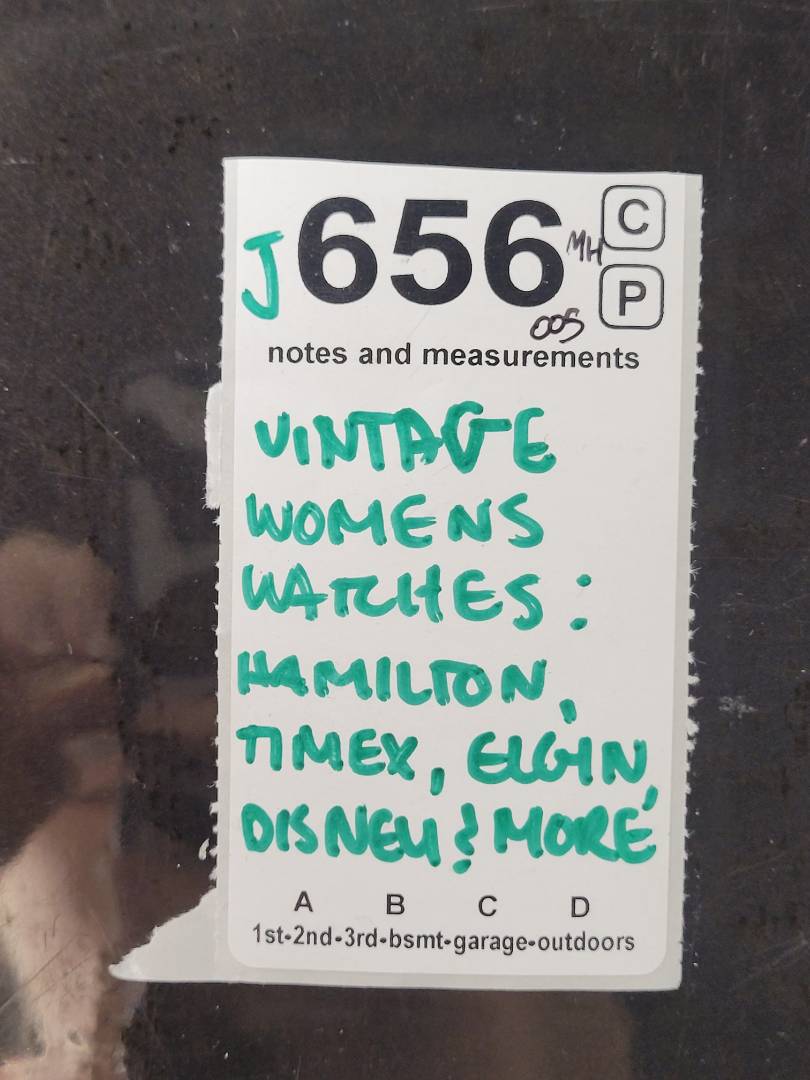 J656 MH C
P
005
notes and measurements
VINTAGE
WOMENS
WATCHES:
HAMILTON,
TIMEX, ELGIN,
DISNEY & MORE
A B C D
1st-2nd-3rd-bsmt-garage-outdoors